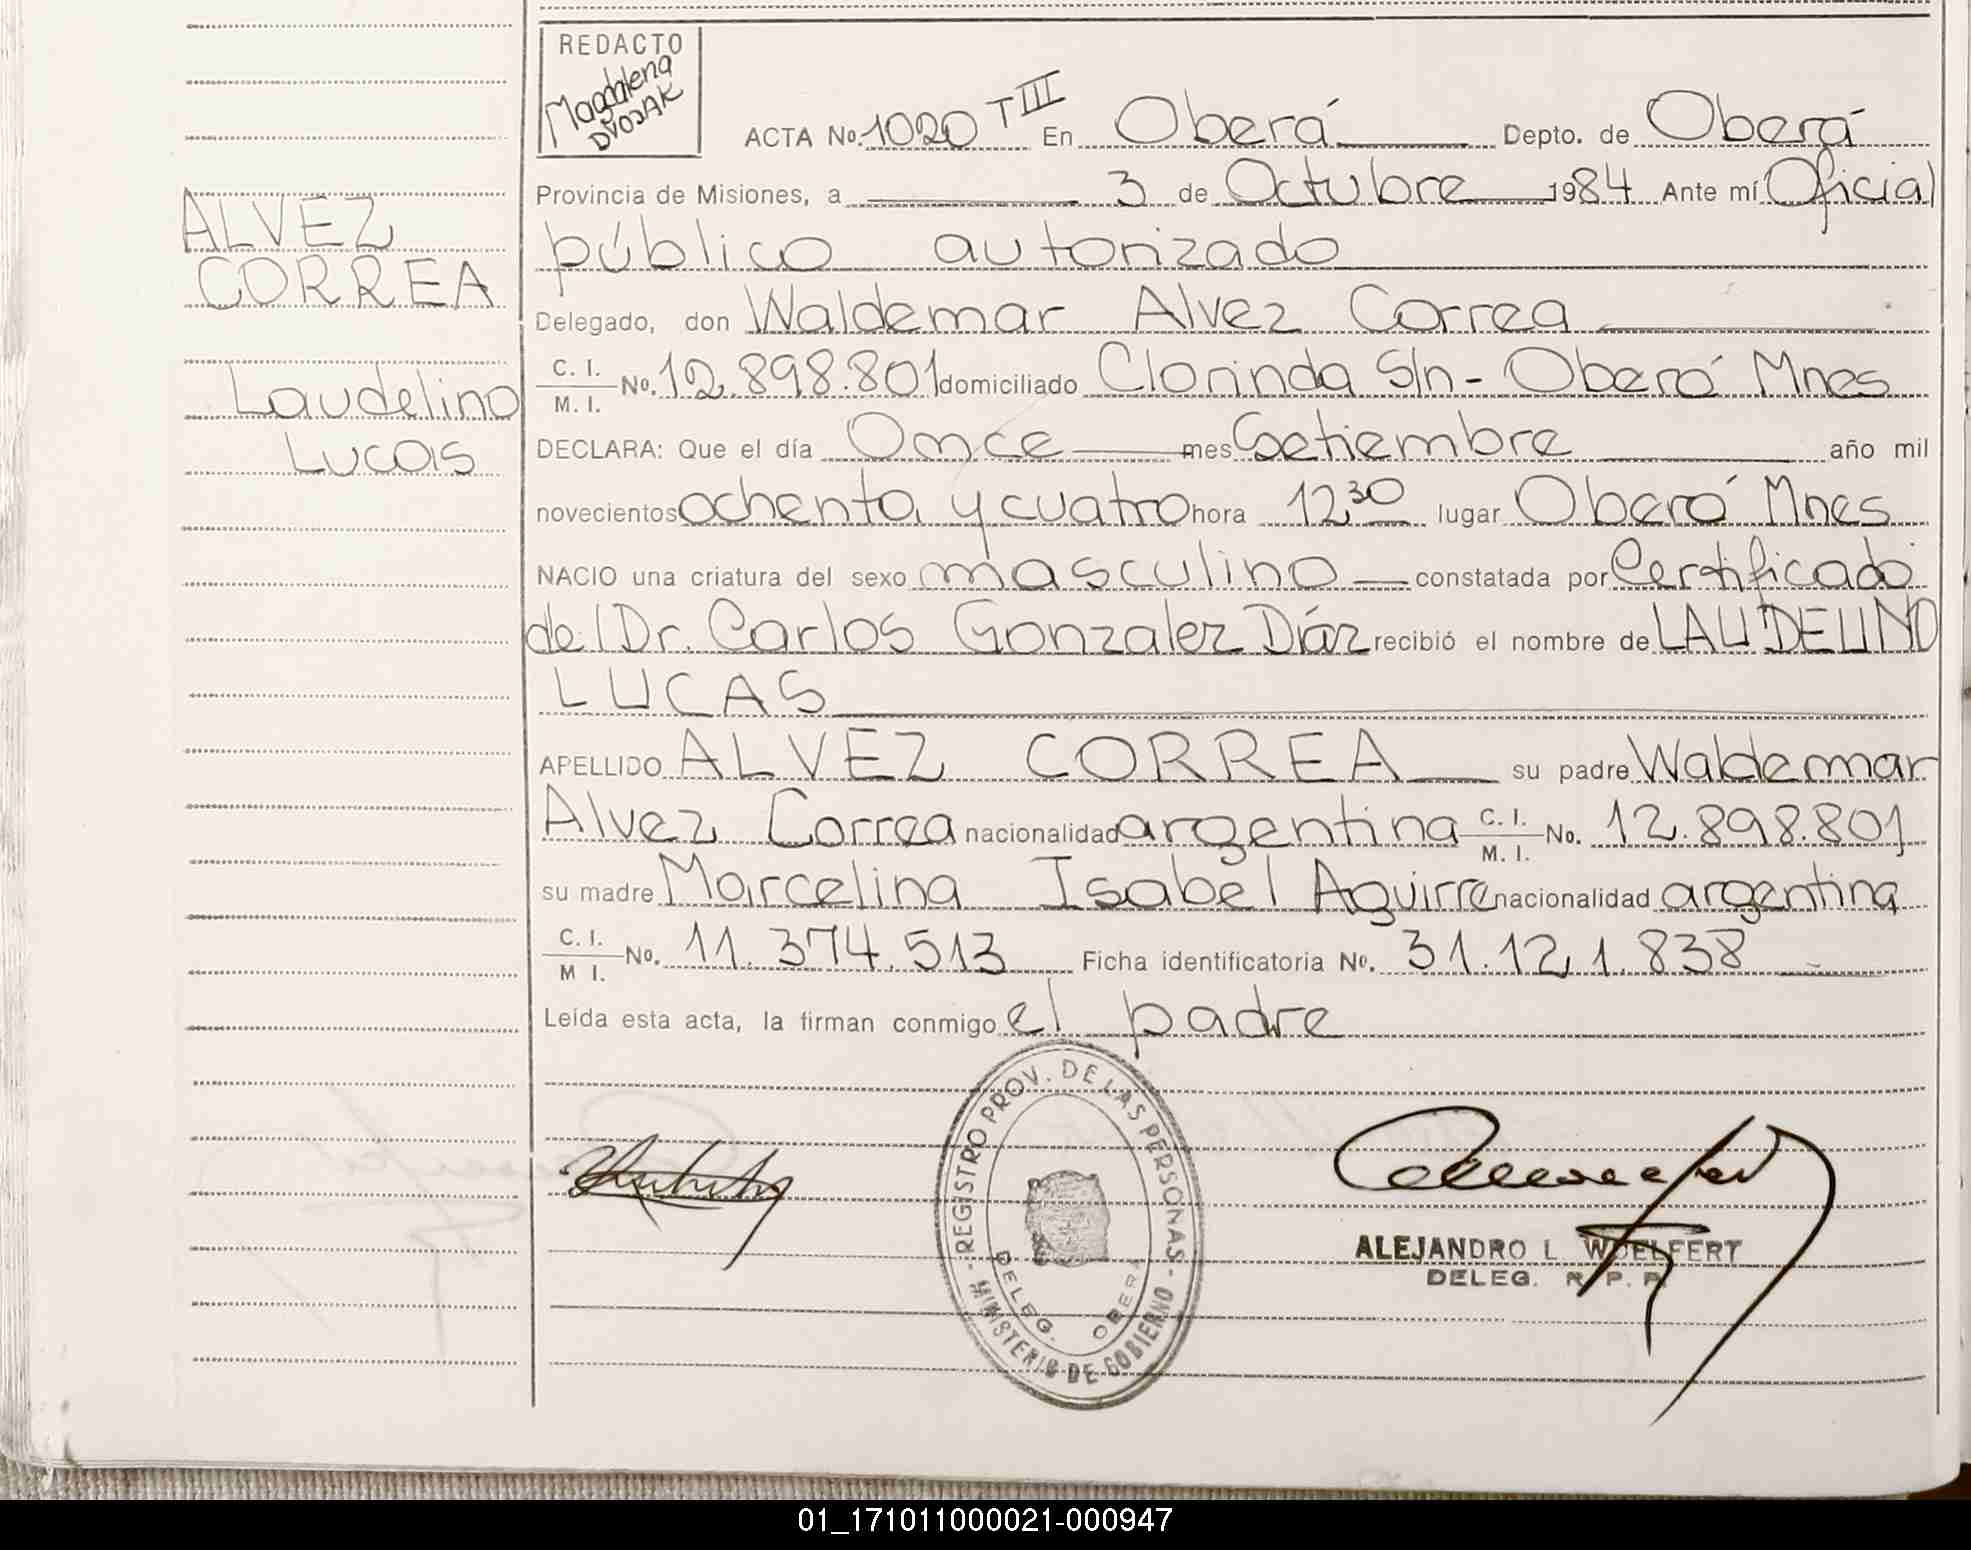 REDACTO
Magdalena
DVOJAK
ACTA No. 1020 T III En Oberá Depto. de Oberá
Provincia de Misiones, a 3 de Octubre 1984 Ante mí Oficial
público autorizado
ALVEZ
CORREA
Laudelino
Lucas
Delegado, don Waldemar Alvez Correa
C. I. / M. I. No. 12.898.801 domiciliado Clorinda S/n - Oberá Mnes
DECLARA: Que el día Once mes Setiembre año mil
novecientos ochenta y cuatro hora 12 30 lugar Oberá Mnes
NACIO una criatura del sexo masculino constatada por Certificado
del Dr. Carlos Gonzalez Díaz recibió el nombre de LAUDELINO
LUCAS
APELLIDO ALVEZ CORREA su padre Waldemar
Alvez Correa nacionalidad argentina C. I. / M. I. No. 12.898.801
su madre Marcelina Isabel Aguirre nacionalidad argentina
C. I. / M I. No. 11.374.513 Ficha identificatoria No. 31.121.838
Leída esta acta, la firman conmigo el padre
- REGISTRO PROV. DE LAS PERSONAS -
MINISTERIO DE GOBIERNO
DELEG. OBERA
ALEJANDRO L. WOELFERT
DELEG. R. P. P.
01_171011000021-000947